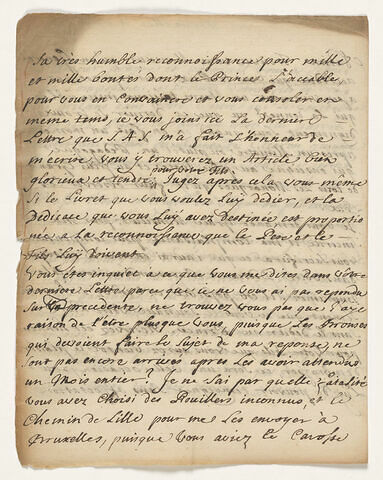 Sa très humble reconnoissance pour mille
et mille bontés dont ce Prince l'accable
pour vous en convaincre et vous consoler en
même tems, je vous joins ici la derniere
Lettre que S.A.S. m'a fait l'honneur de
m'écrire, vous y trouverez un Article bien
glorieux et tendre pour votre fils. Jugez après cela vous même
Si le Livret que vous voulez Luy dedier, et la
Dedicace que vous Luy avez destinée est proportio
née a La reconnoissance que le Pere et le
fils Luy doivent
Vous etes inquiet a ce que vous me dites dans Vôtre
derniere Lettre parce que je ne vous ai pas repondu
sur la precedente, ne trouvez vous pas que j'aye
raison de l'être plus que vous, puisque Les Bronses
qui devoient faire le Sujet de ma reponse, ne
sont pas encore arrivés après les avoir attendus
un Mois entier? Je ne sai par quelle fatalité
vous avez choisi des Roulliers inconnus, et le
Chemin de Lille pour me Les envoyer à
Bruxelles, puisque vous aviez le Carosse